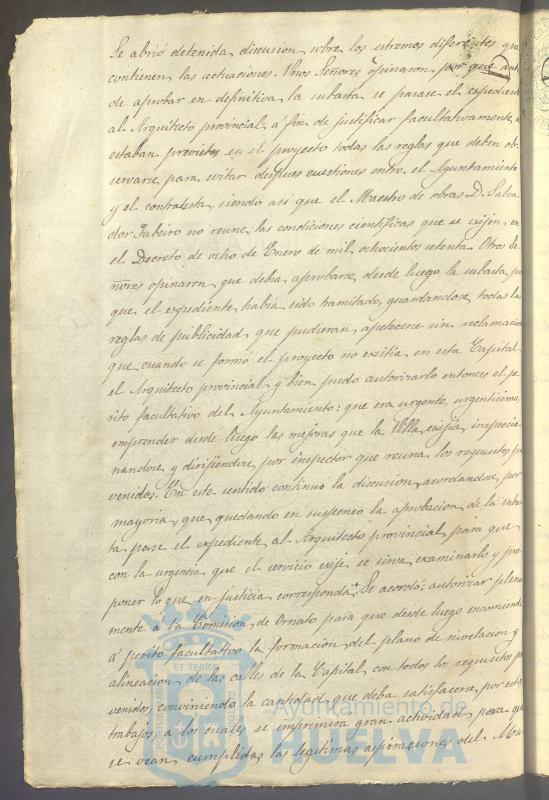 Se abrió detenida discusion sobre los estremos diferentes que
contienen las actuaciones. Unos Señores opinaron por que ant
de aprobar en definitiva la subasta se pasase el expediente
al Arquitecto provincial á fin de justificar facultativamente, si
estaban previstas en el proyecto todas las reglas que deben ob-
servarse, para evitar despues cuestiones entre el Ayuntamiento
y el contratista, siendo asi que el Maestro de obras D. Salva
dor no reune las condiciones cientificas que se exijen en
el Decreto de ocho de Enero de mil ochocientos setenta. Otros Se-
ñores opinaron que debia aprobarse desde luego la subasta, por
que el expediente habia sido tramitado, guardandose todas las
reglas de publicidad que pudieran apetecerse sin reclamacion
que cuando se formó el proyecto no existia en esta Capital
el Arquitecto provincial y bien pudo autorizarlo entonces el pe-
rito facultativo del Ayuntamiento: que era urgente, urgentisimo,
emprender desde luego las mejoras que la Villa exijia inspeccio
nandose y dirijiendose por inspector que reuna los requisitos pre
venidos. En este sentido continuo la discusion, acordandose, por
mayoria, que quedando en suspenso la aprobacion de la subas
ta pase el expediente al Arquitecto provincial para que
con la urgencia que el servicio exije se sirva examinarlo y pro-
poner lo que en justicia corresponda. Se acordó: autorizar plena
mente á la Comision de Ornato para que desde luego encomiende
á perito facultativo la formacion del plano de nivelacion y
alineacion de las calles de la Capital con todos los requisitos pre
venidos, conviniendo la cantidad que deba satisfacerse, por estos
trabajos, á los cuales se imprimirá gran actividad para que
se vean cumplidas las legitimas aspiraciones del Mu
Ayuntamiento de
HUELVA
ET TERRÆ